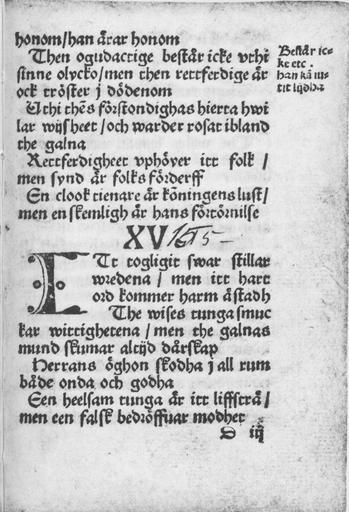 honom/han ärar honom
Then ogudactige består icke vthi
sinne olycko/men then rettferdige är
ock tröster j dödenom
Uthi thẽs förstondighas hierta hwi
lar wijsheet/och warder rosat ibland
the galna
Rettferdigheet vphöyer itt folk/
men synd är folks förderff
En clook tienare är köningens lust/
men en skemligh är hans förtörnilse
Består ic-
ke etc.
han kã in-
tit lijdha
XV
ETt togligit swar stillar
wredena/men itt hart
ord kommer harm åstadh
The wises tunga smuc
kar wittighetena/men the galnas
mund skumar altijd dårskap
Herrans öghon skodha j all rum
både onda och godha
Een heelsam tunga är itt liffsträ/
men een falsk bedröffuar modhet
D iij